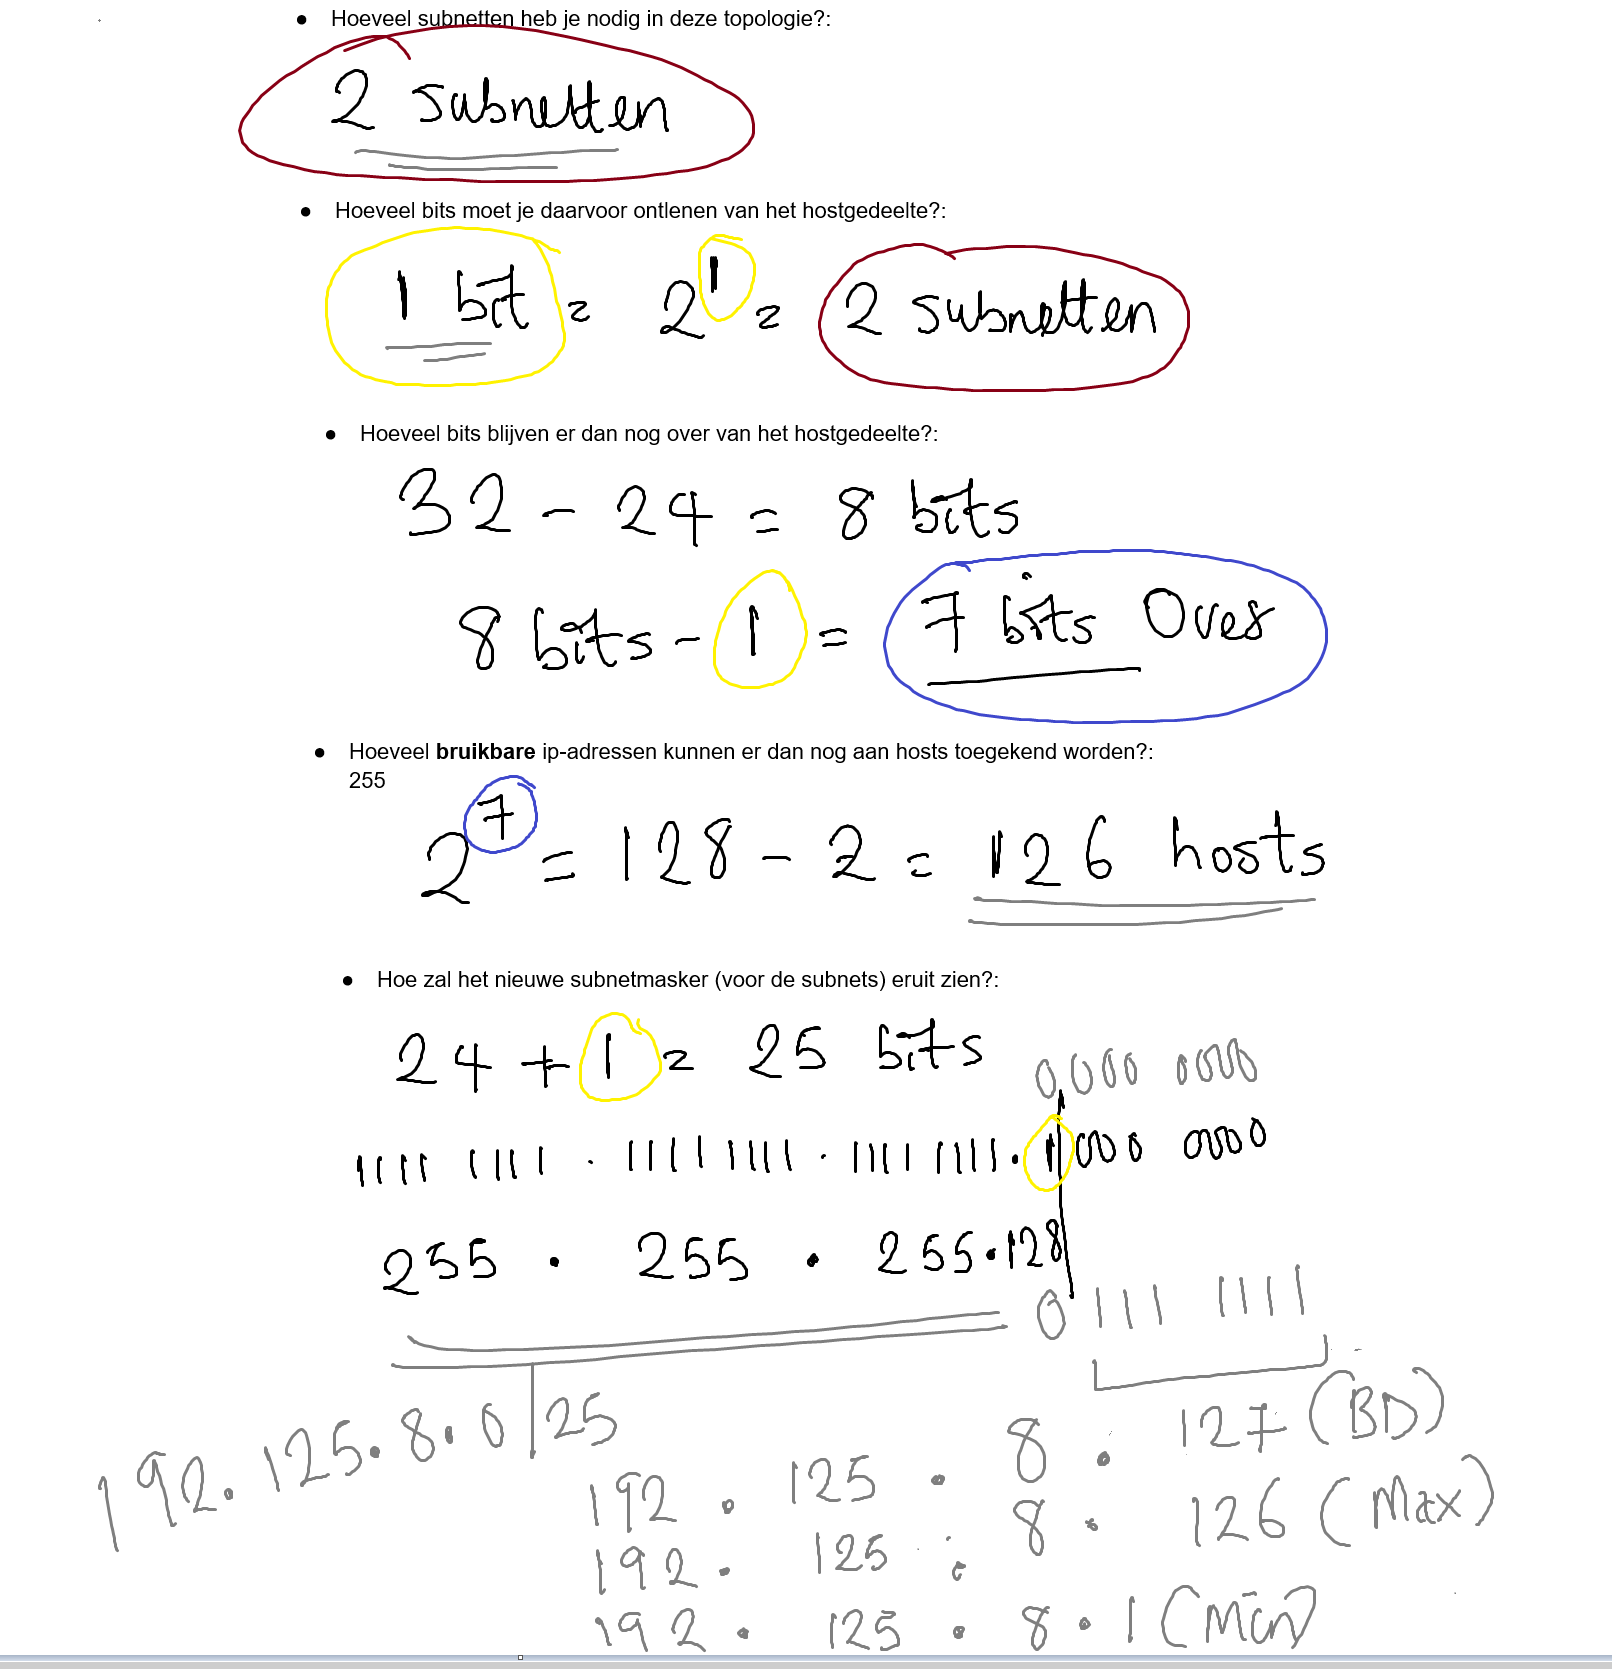 ● Hoeveel subnetten heb je nodig in deze topologie?:
2 subnetten
● Hoeveel bits moet je daarvoor ontlenen van het hostgedeelte?:
1 bit = 2^1 = 2 subnetten
● Hoeveel bits blijven er dan nog over van het hostgedeelte?:
32 - 24 = 8 bits
8 bits - 1 = 7 bits Over
● Hoeveel bruikbare ip-adressen kunnen er dan nog aan hosts toegekend worden?:
255
2^7 = 128 - 2 = 126 hosts
● Hoe zal het nieuwe subnetmasker (voor de subnets) eruit zien?:
24 + 1 = 25 bits
0000 0000
1111 1111 . 1111 1111 . 1111 1111 . 1000 0000
255 . 255 . 255.128
0111 1111
192.125.8.0/25
192 . 125 . 8 . 127 (BD)
192 . 125 . 8 . 126 (Max)
192 . 125 . 8 . 1 (Min)